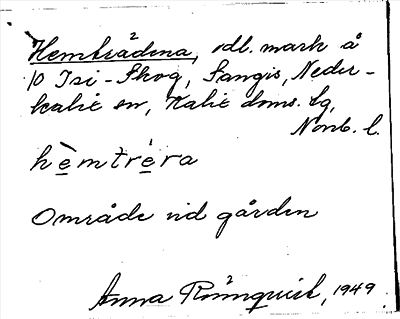 Hemträdena, odl. mark å
10 Isi-Skog, Sangis, Neder-
kalix sn, Kalix doms. tg,
Norrb. l.
hèmtréra
Område vid gården
Anna Rönnquist, 1949